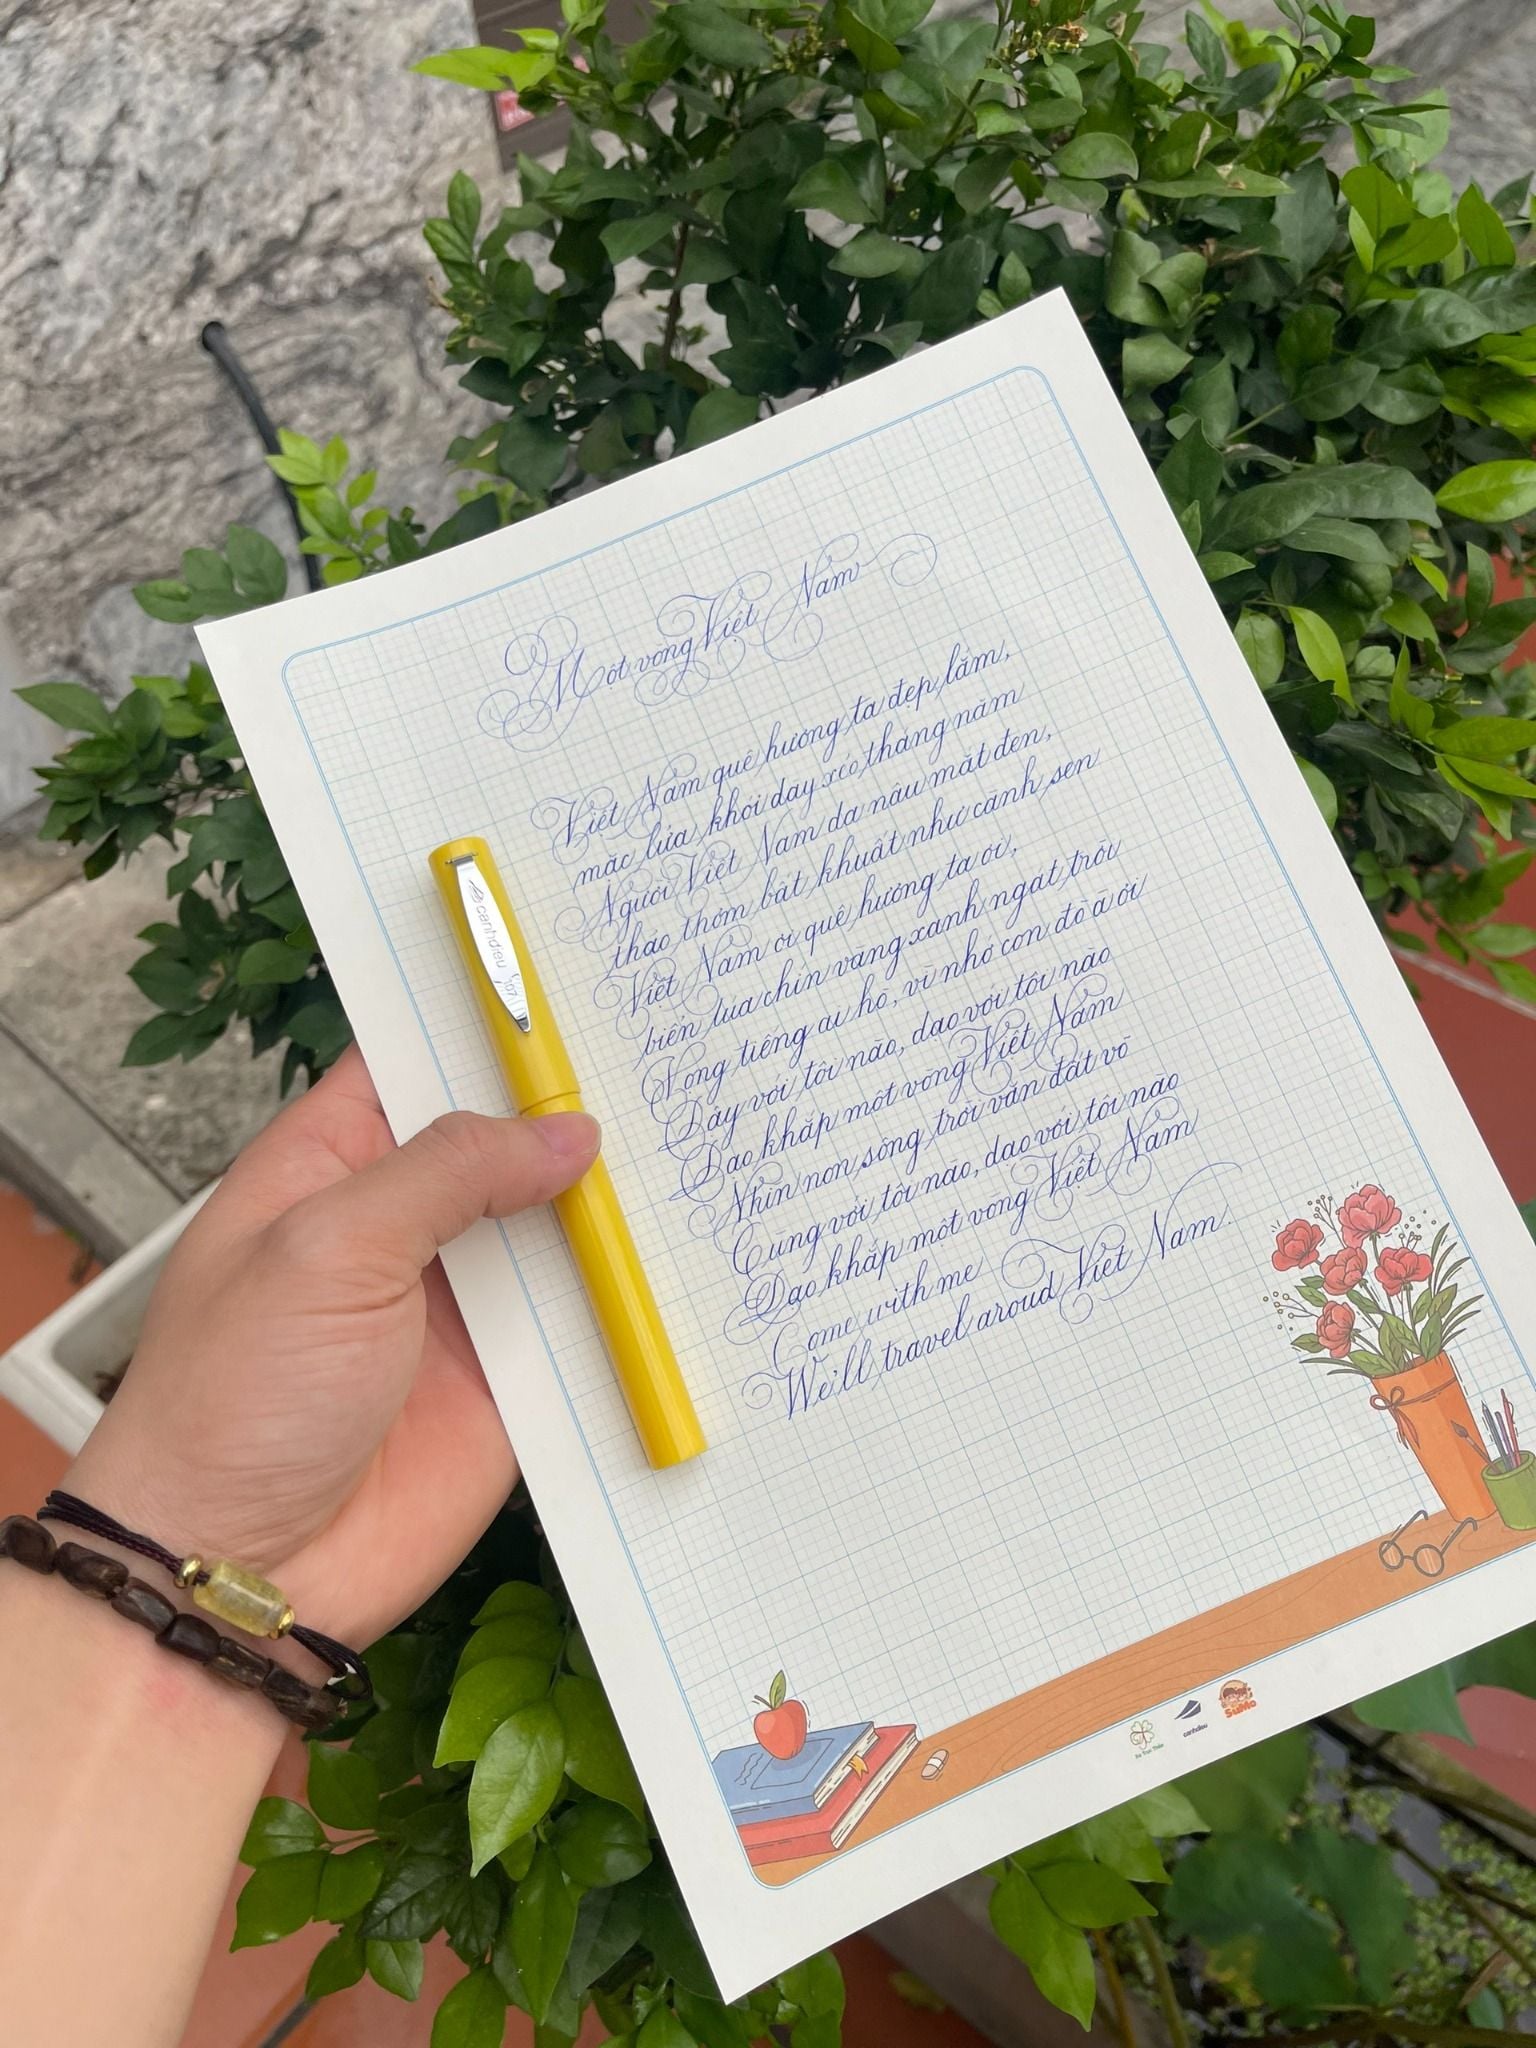 Một vòng Việt Nam
Việt Nam quê hương ta đẹp lắm,
mặc lửa khói dày xéo tháng năm
Người Việt Nam da nâu mắt đen,
thảo thơm bất khuất như cánh sen
Việt Nam ơi quê hương ta ơi,
biển lúa chín vàng xanh ngát trời
Vọng tiếng ai hò, ví nhớ con đò ã ơi
Dậy với tôi nào, dạo với tôi nào
Dạo khắp một vòng Việt Nam
Nhìn non sông trời văn đất võ
Cùng với tôi nào, dạo với tôi nào
Dạo khắp một vòng Việt Nam
Come with me
We'll travel aroud Việt Nam.
canhdieu
107
canhdieu
SuMo